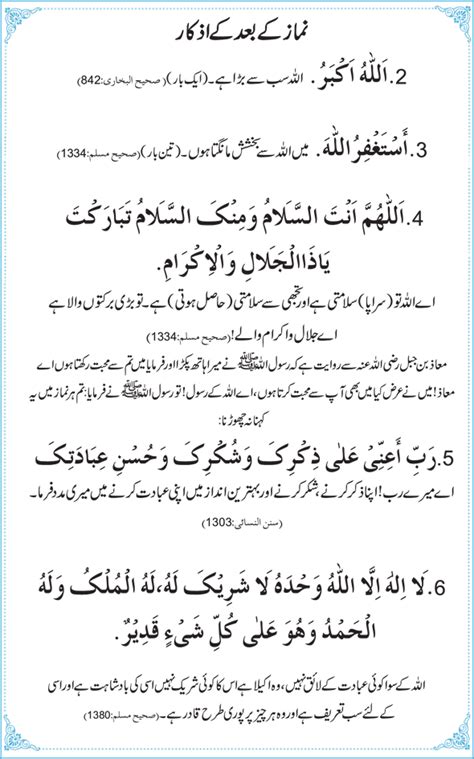 نماز کے بعد کے اذکار
2. اَللّٰهُ اَكْبَرُ. اللہ سب سے بڑا ہے۔ (ایک بار) (صحیح البخاری:842)
3. أَسْتَغْفِرُ اللّٰهَ. میں اللہ سے بخشش مانگتا ہوں۔ (تین بار) (صحیح مسلم:1334)
4. اَللّٰهُمَّ اَنْتَ السَّلَامُ وَمِنْکَ السَّلَامُ تَبَارَکْتَ
يَاذَاالْجَلَالِ وَالْاِکْرَامِ.
اے اللہ تو (سراپا) سلامتی ہے اور تجھی سے سلامتی (حاصل ہوتی) ہے۔ تو بڑی برکتوں والا ہے
اے جلال واکرام والے! (صحیح مسلم:1334)
معاذ بن جبل رضی اللہ عنہ سے روایت ہے کہ رسول اللہ ﷺ نے میرا ہاتھ پکڑا اور فرمایا میں تم سے محبت رکھتا ہوں اے
معاذ! میں نے عرض کیا میں بھی آپ سے محبت کرتا ہوں، اے اللہ کے رسول! تو رسول اللہ ﷺ نے فرمایا: تم ہر نماز میں یہ
کہنا نہ چھوڑنا:
5. رَبِّ أَعِنِّیْ عَلٰی ذِکْرِکَ وَشُکْرِکَ وَحُسْنِ عِبَادَتِکَ
اے میرے رب! اپنا ذکر کرنے، شکر کرنے، اور بہترین انداز میں اپنی عبادت کرنے میں میری مدد فرما۔
(سنن النسائی:1303)
6. لَا اِلٰهَ اِلَّا اللّٰهُ وَحْدَهُ لَا شَرِيْکَ لَهُ، لَهُ الْمُلْکُ وَلَهُ
الْحَمْدُ وَهُوَ عَلٰی کُلِّ شَیْءٍ قَدِيْرٌ.
اللہ کے سوا کوئی عبادت کے لائق نہیں، وہ اکیلا ہے اس کا کوئی شریک نہیں اسی کی بادشاہت ہے اور اسی
کے لئے سب تعریف ہے اور وہ ہر چیز پر پوری طرح قادر ہے۔ (صحیح مسلم:1380)